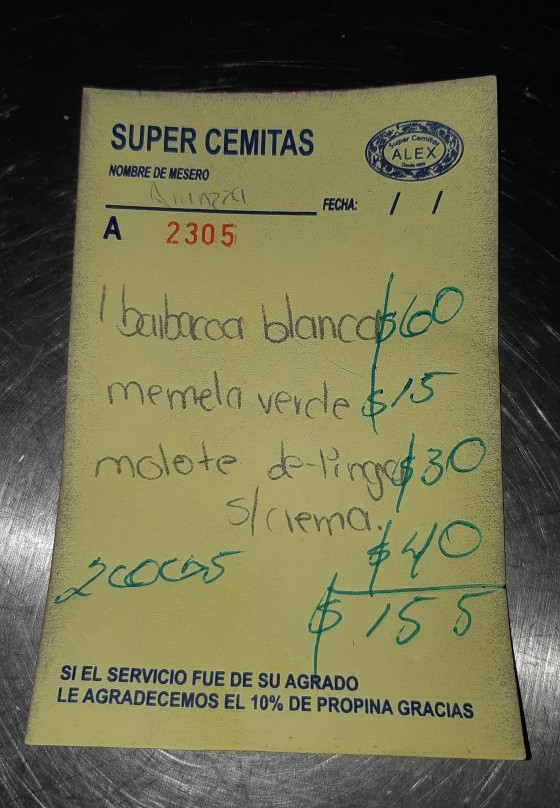 SUPER CEMITAS
Super Cemitas
ALEX
Desde 1990
NOMBRE DE MESERO
FECHA: / /
A 2305
1 barbacoa blanca $60
memela verde $15
molote de tinga $30
s/crema.
$40
2 cocas
$155
SI EL SERVICIO FUE DE SU AGRADO
LE AGRADECEMOS EL 10% DE PROPINA GRACIAS